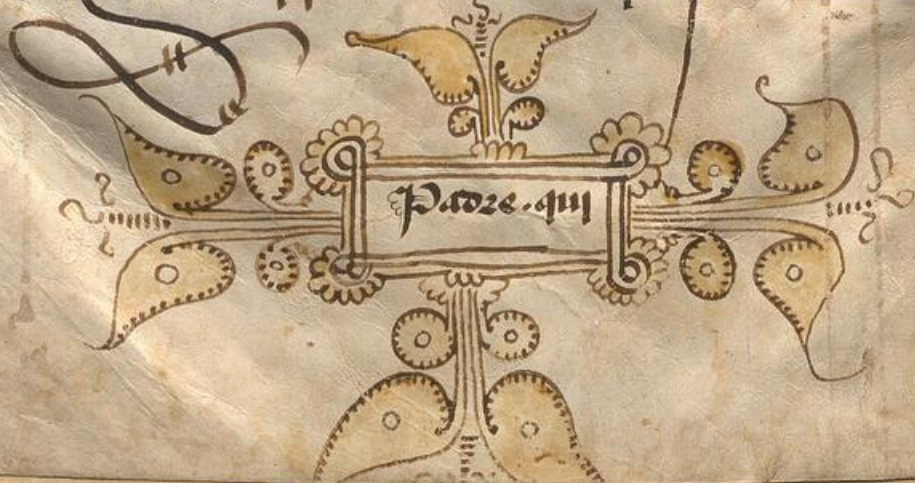 Padre · qui